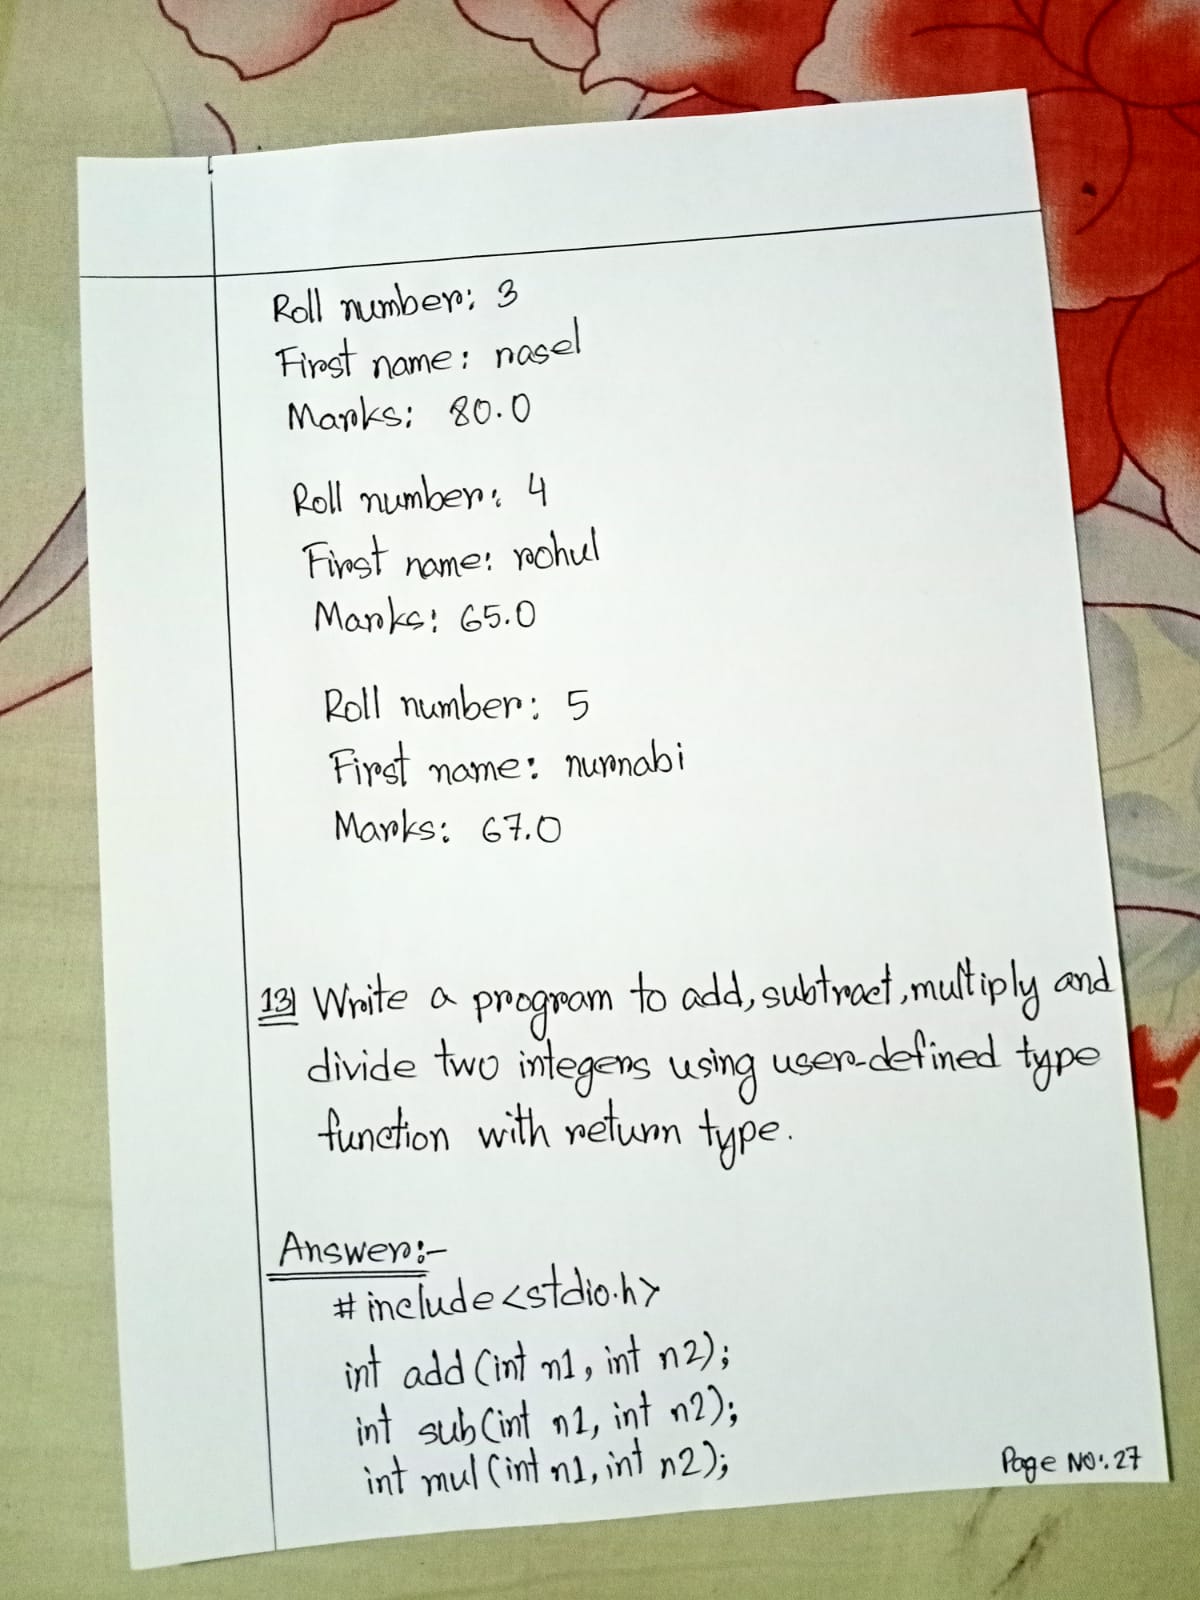 Roll number: 3
First name: nasel
Marks: 80.0
Roll number: 4
First name: rohul
Marks: 65.0
Roll number: 5
First name: nurnabi
Marks: 67.0
13) Write a program to add, subtract, multiply and
divide two integers using user-defined type
function with return type.
Answer:-
#include<stdio.h>
int add (int n1, int n2);
int sub (int n1, int n2);
int mul (int n1, int n2);
Page NO:. 27